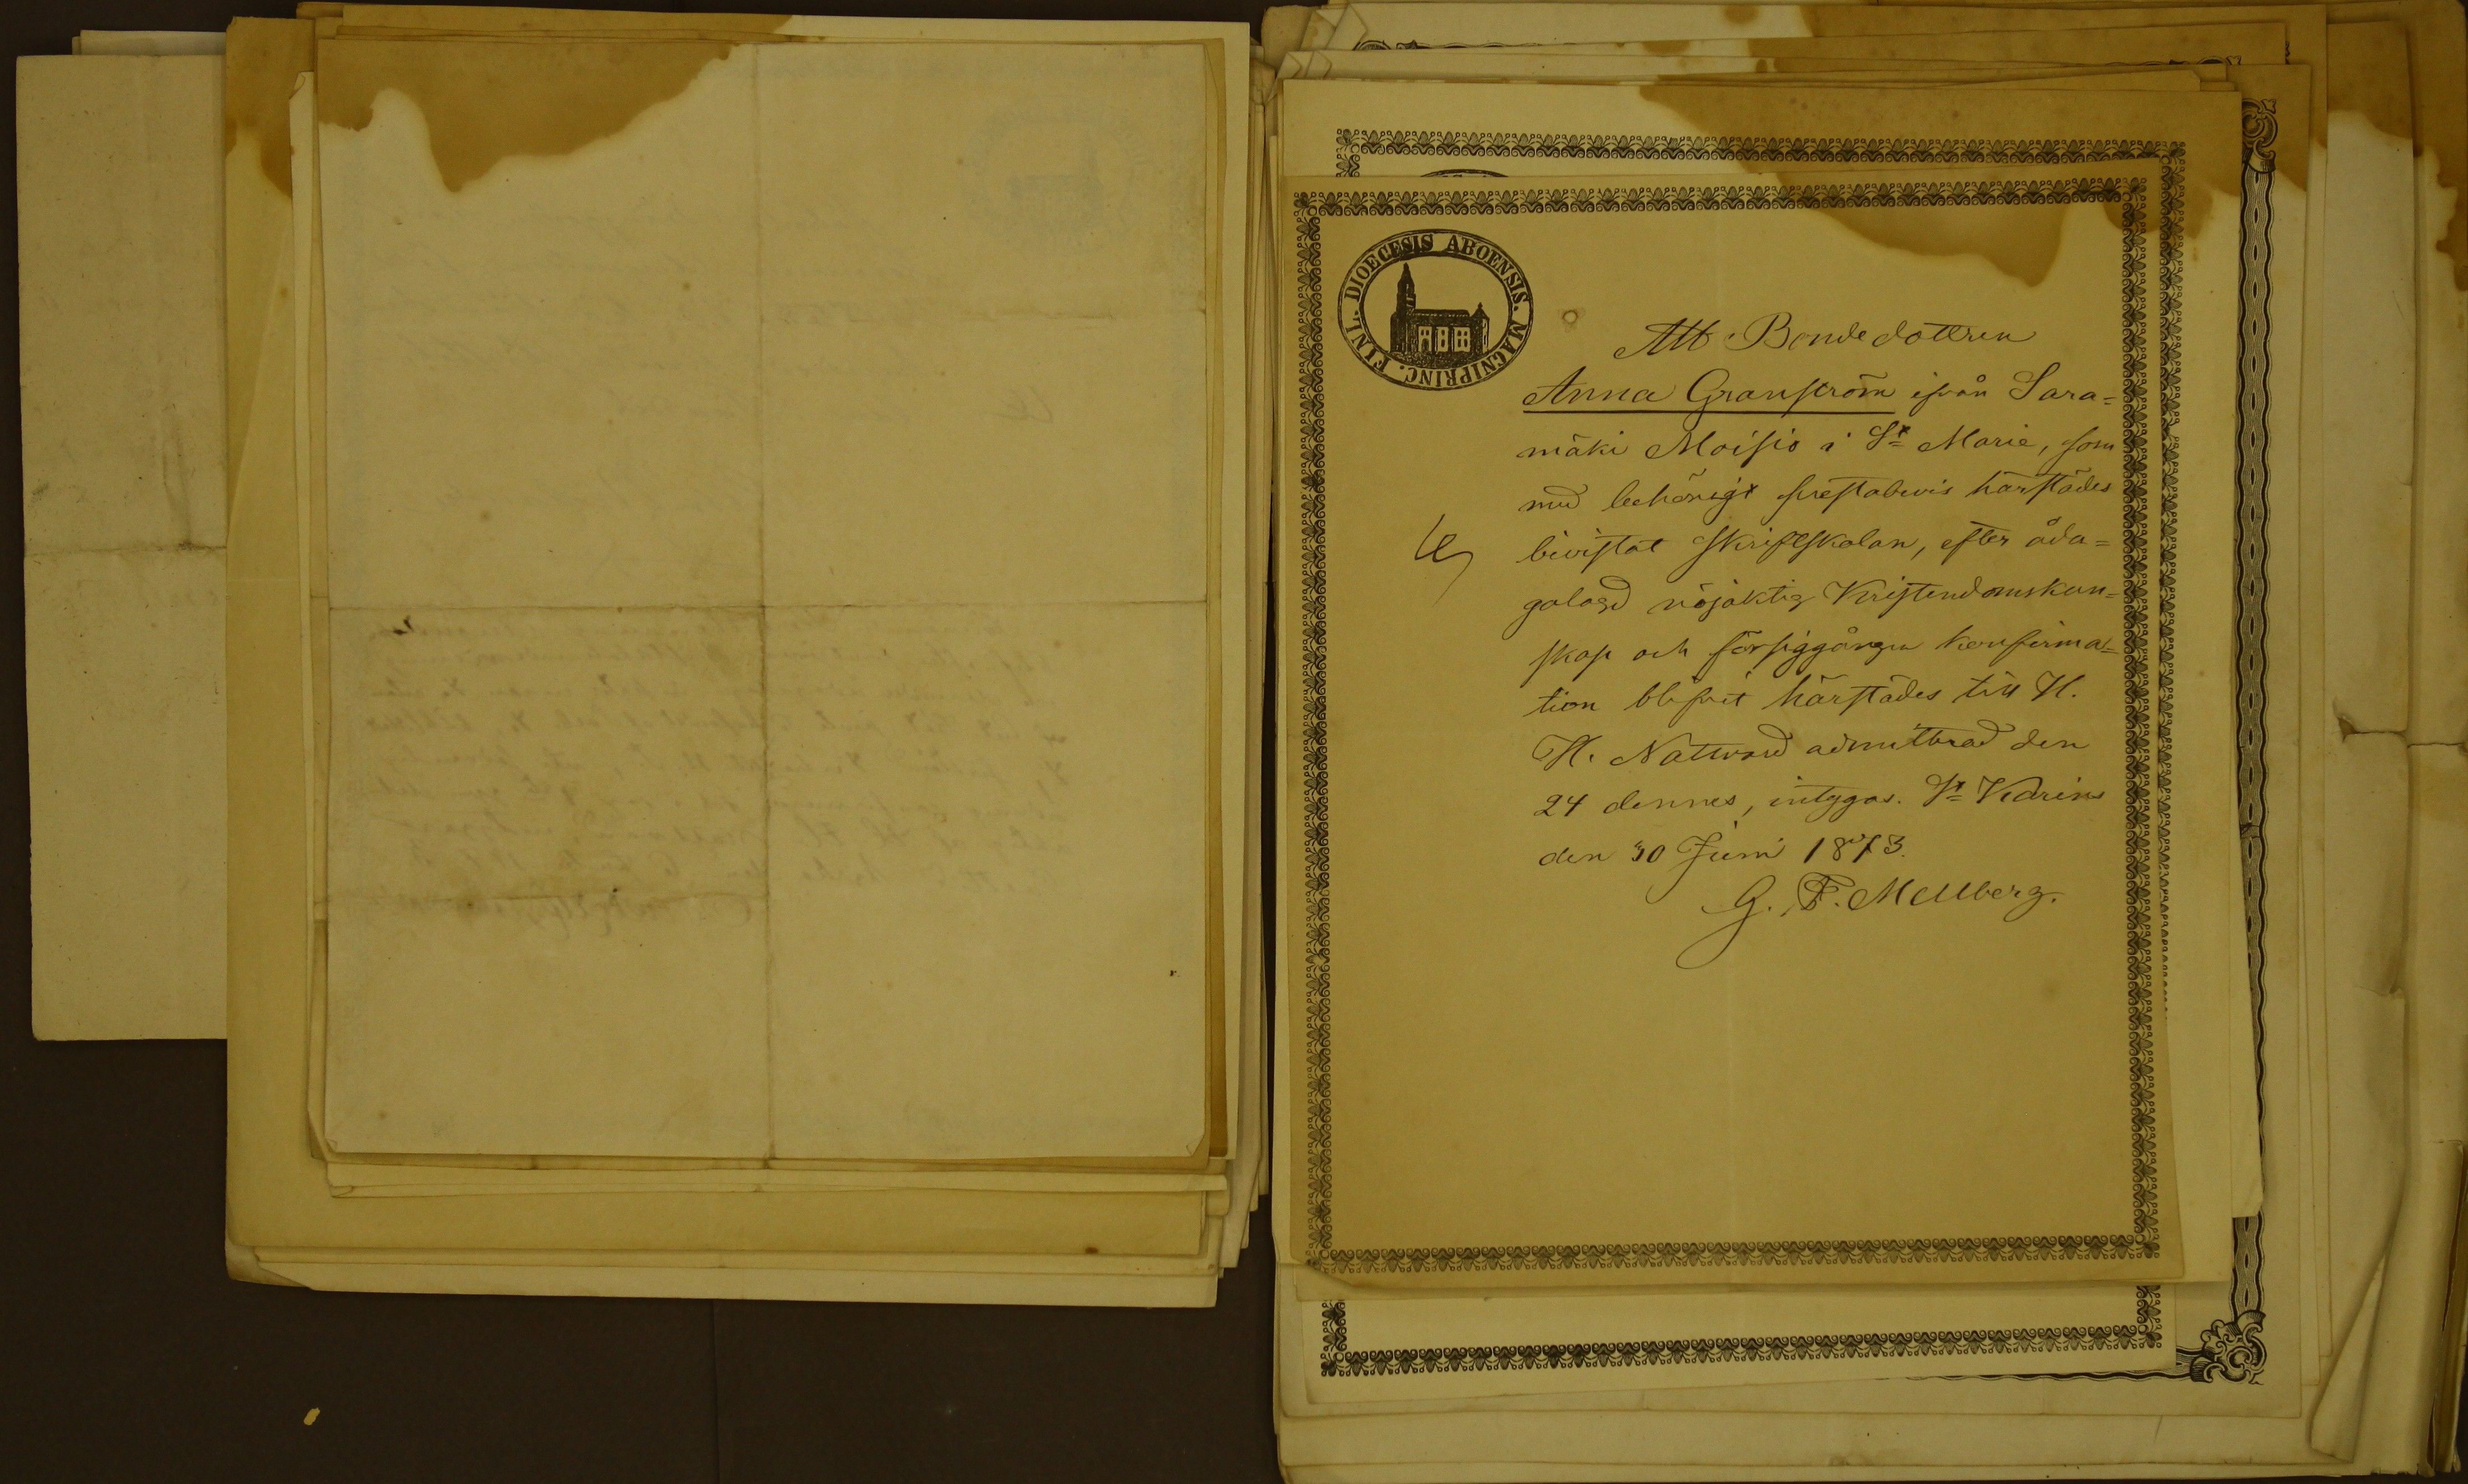 DIOECESIS ABOENSIS. MAGNIPRINC. FINL.
Att Bondedottren
Anna Granström ifrån Sara=
mäki Moisio i S:t Marie, som
med behörigt prestabevis härstädes
bivistat Skriftskolan, efter åda=
galagd nöjaktig Kristendomskun=
skap och försiggången konfirma=
tion blifvit härstädes till H.
H. Nattvard admitterad den
24 dennes, intygas. S:t Karins
den 30 Juni 1873.
G. F. Mellberg.